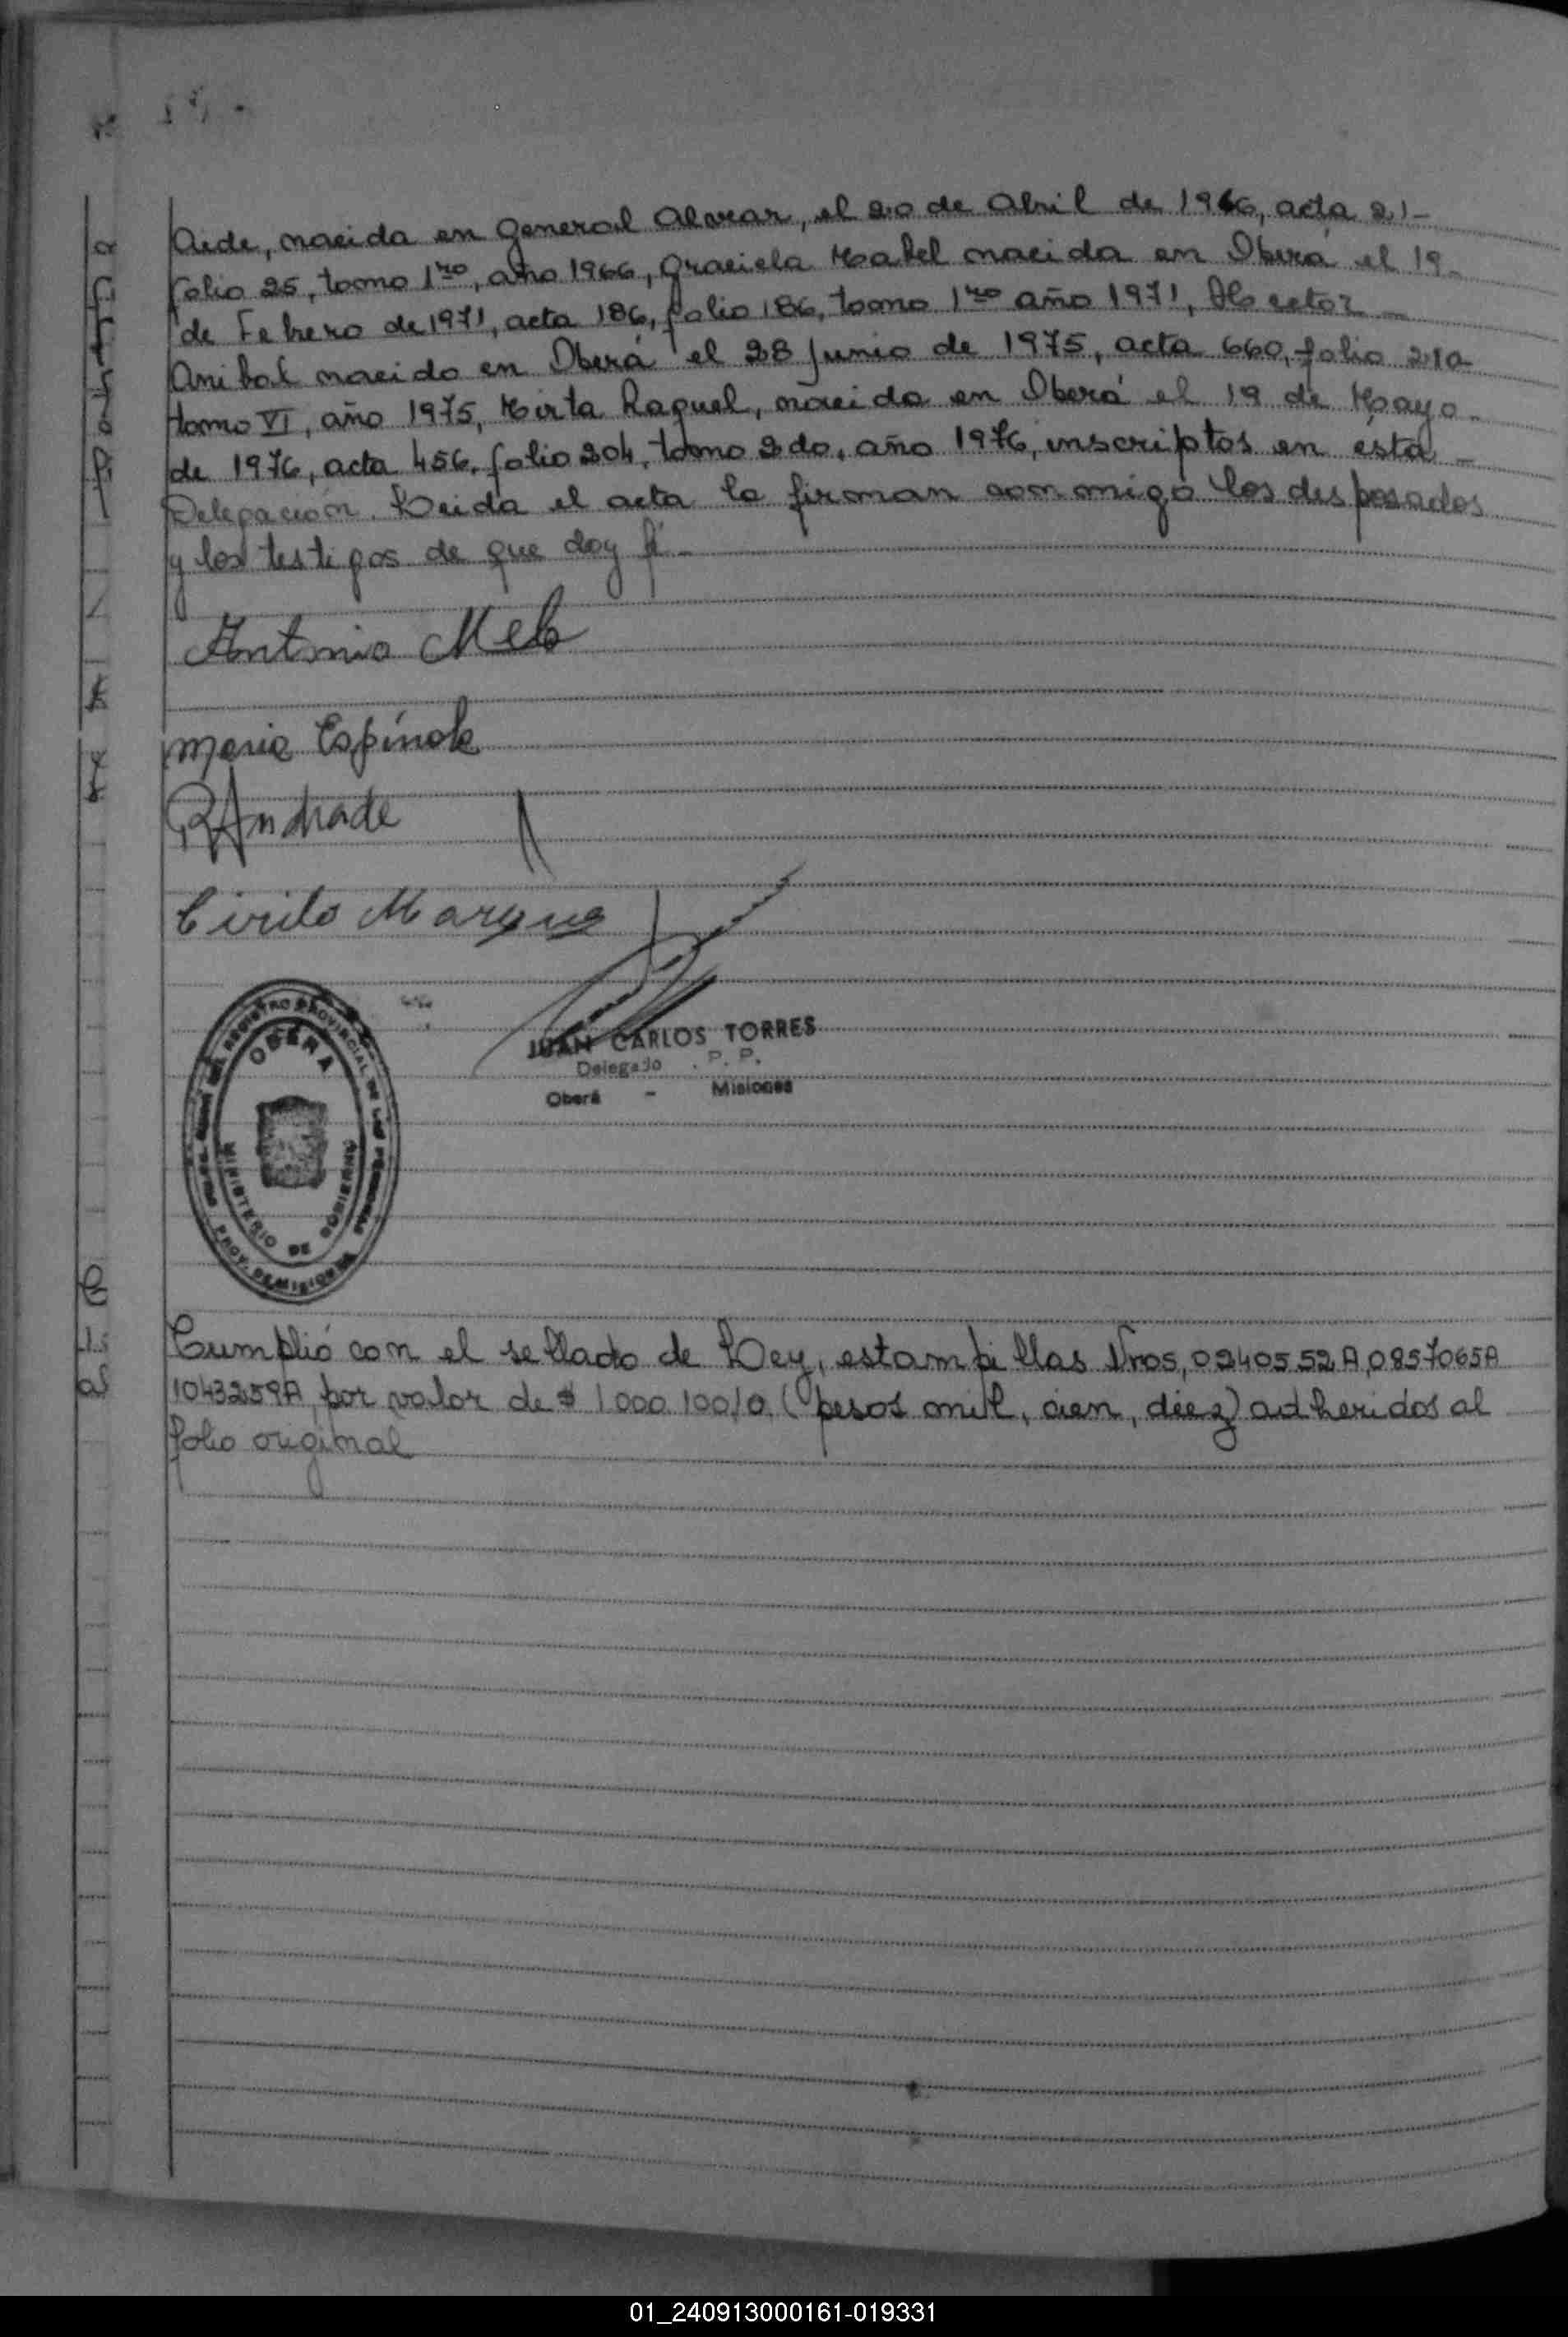 Aide, nacida en General Alvear, el 20 de Abril de 1966, acta 21-
folio 25, tomo 1ro, año 1966, Graciela Mabel nacida en Oberá el 19-
de Febrero de 1971, acta 186, folio 186, tomo 1ro año 1971, Hector-
Anibal nacido en Oberá el 28 Junio de 1975, acta 660, folio 210
tomo VI, año 1975, Mirta Raquel, nacida en Oberá el 19 de Mayo-
de 1976, acta 456, folio 204, tomo 2do, año 1976, inscriptos en ésta-
Delegación. Leida el acta la firman conmigo los desposados
y los testigos de que doy fé-
Antonio Melo
Maria Espínola
Andrade
Cirilo Marques
JUAN CARLOS TORRES
Delegado P. P.
Oberá - Misiones
REGISTRO PROVINCIAL DE LAS PERSONAS
OBERA
MINISTERIO DE GOBIERNO
PROV. DE MISIONES
Cumplió con el sellado de Ley, estampillas Nros, 0240552A, 0857065A
1043259A, por valor de $ 1000.100,10, (pesos mil, cien, diez) adheridos al
folio original
01_240913000161-019331